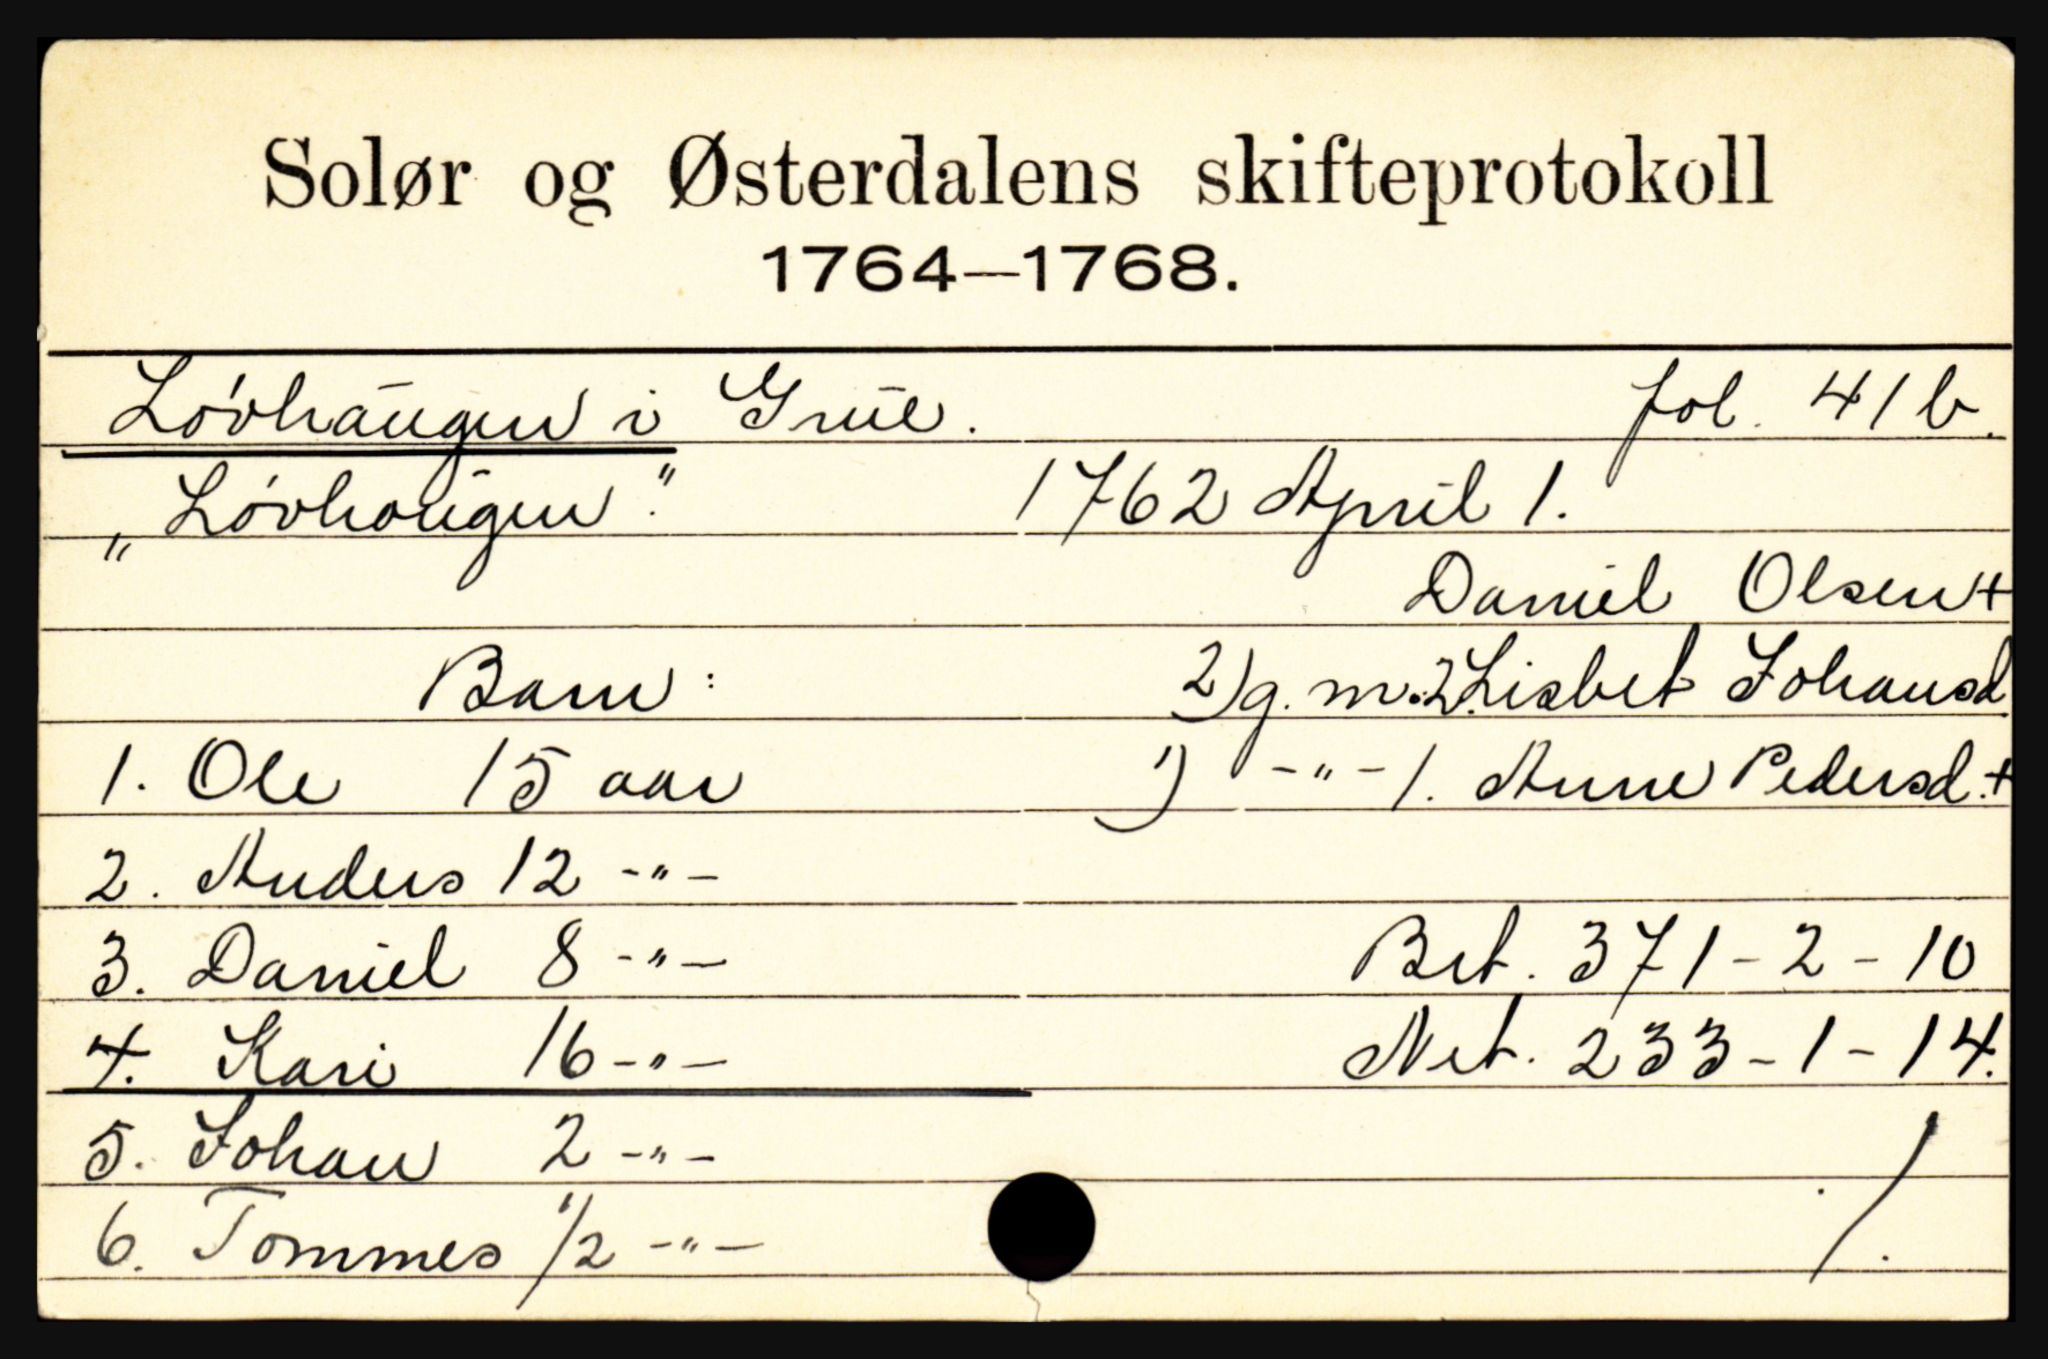 Solør og Østerdalens skifteprotokoll
1764—1768.
Løvhaugen i Grue. fol. 41 b.
„Løvhougen". 1762 April 1.
Daniel Olsen +
Barn: 2) g. m. 2. Lisbet Johansd
1. Ole 15 aar 1) -"- 1. Anne Pedersd. +
2. Anders 12 -"-
3. Daniel 8 -"- Brt. 371-2-10
4. Kari 16 -"- Net. 233-1-14.
5. Johan 2 -"-
6. Tommes 1/2 -"- ./.